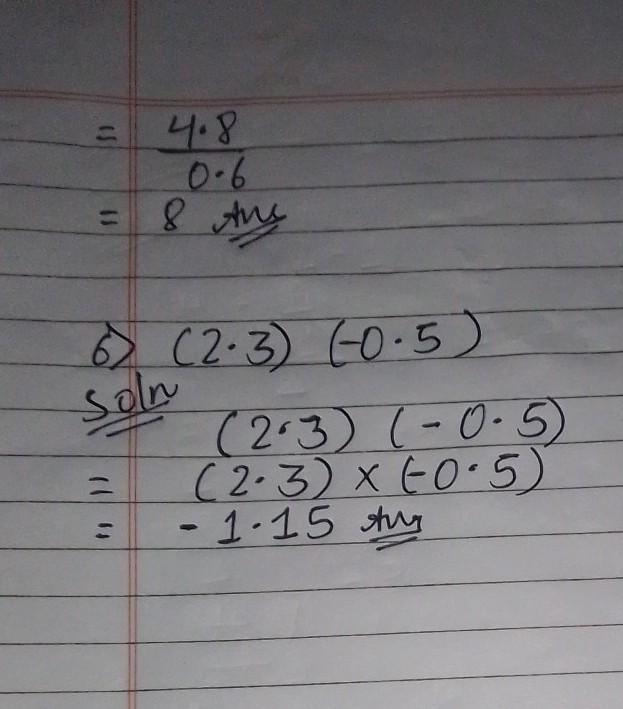 = 4.8
0.6
= 8 Ans
6> (2.3) (-0.5)
Soln
(2.3) (-0.5)
= (2.3) x (-0.5)
= -1.15 Ans